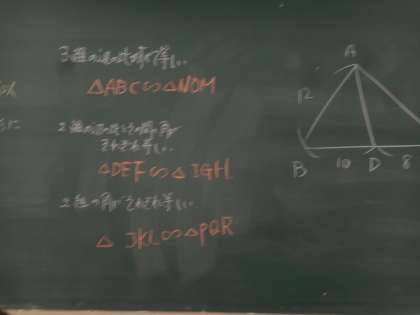 3組の辺の比が全て等しい
△ABC∽△NOM
2組の辺の比とその間の角が
それぞれ等しい
△DEF∽△IGH
2組の角がそれぞれ等しい
△JKL∽△PQR
A
12
B
10
D
8